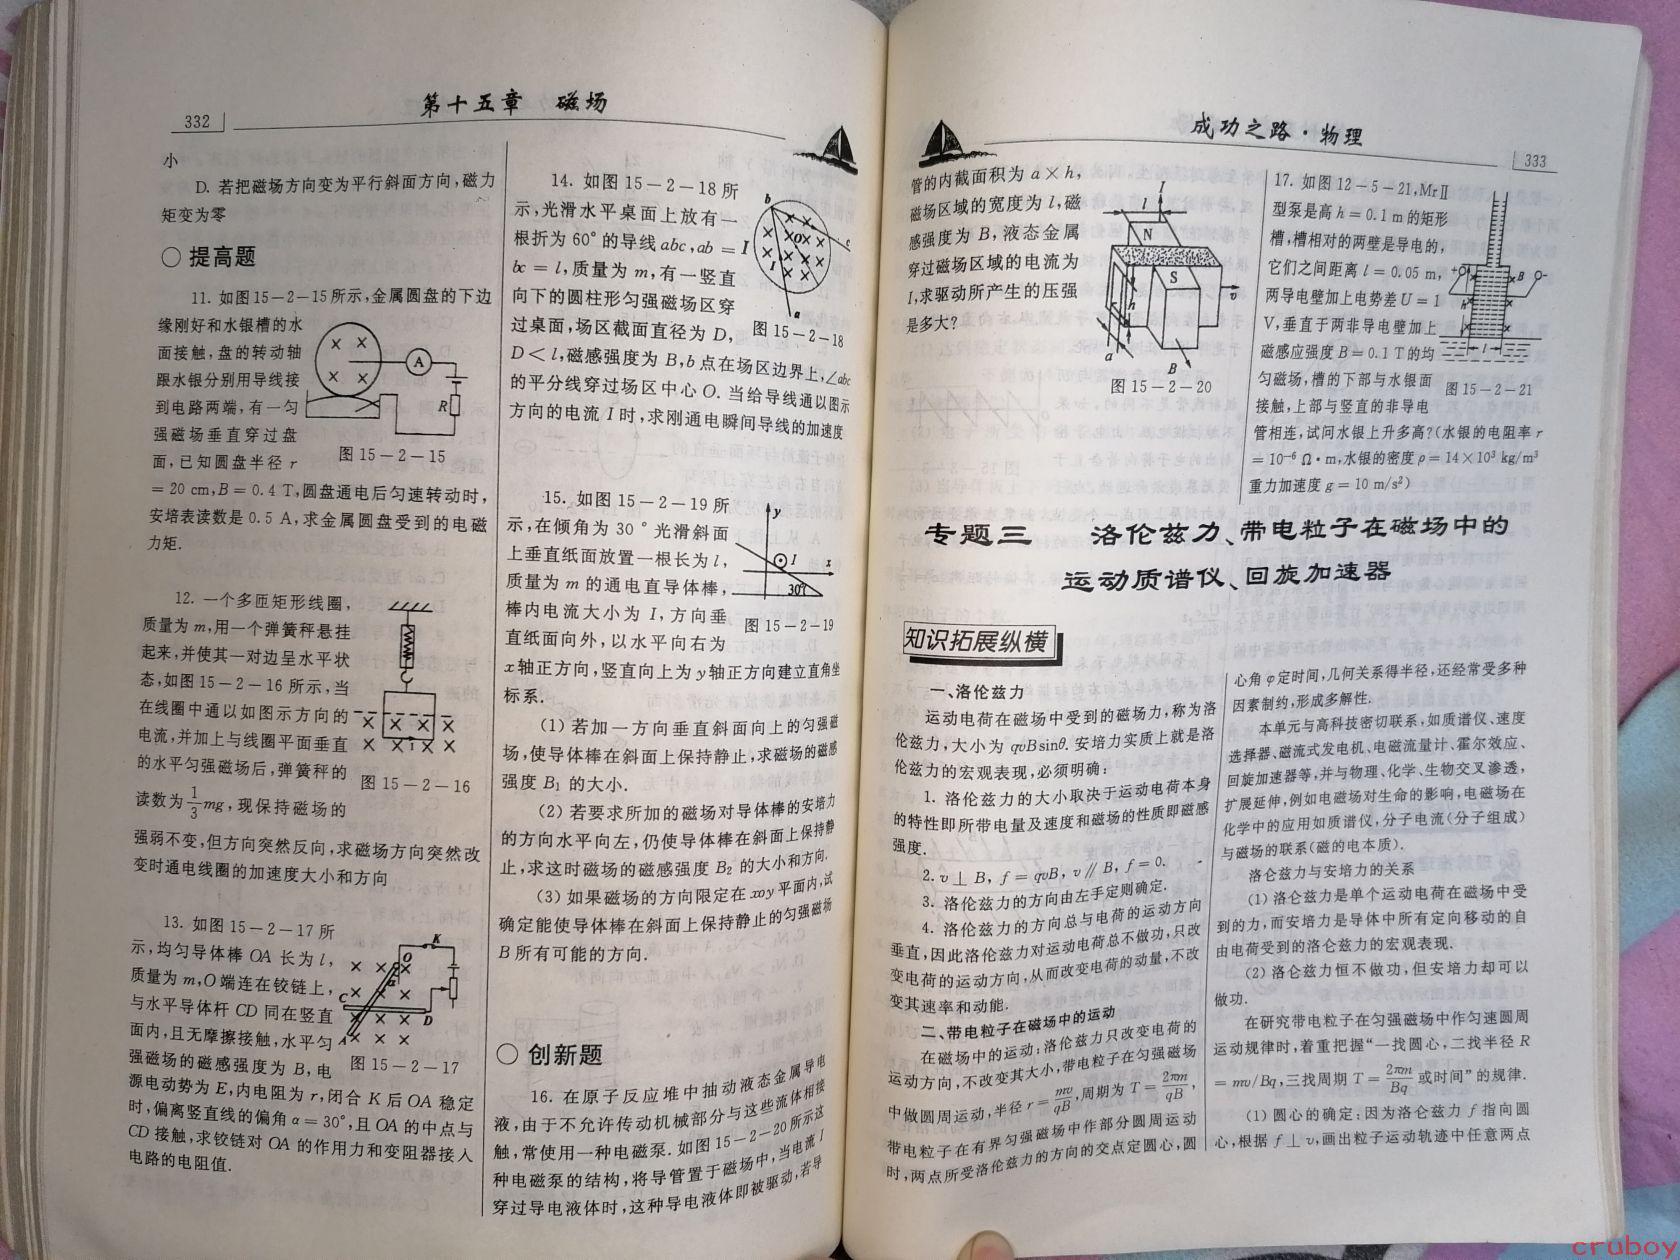 332
第十五章 磁场
小
D. 若把磁场方向变为平行斜面方向,磁力
矩变为零
○ 提高题
11. 如图15-2-15所示,金属圆盘的下边
缘刚好和水银槽的水
面接触,盘的转动轴
跟水银分别用导线接
到电路两端,有一匀
强磁场垂直穿过盘
面,已知圆盘半径 r
= 20 cm,B = 0.4 T,圆盘通电后匀速转动时,
安培表读数是 0.5 A,求金属圆盘受到的电磁
力矩.
A
R
图 15-2-15
12. 一个多匝矩形线圈,
质量为 m,用一个弹簧秤悬挂
起来,并使其一对边呈水平状
态,如图 15-2-16 所示,当
在线圈中通以如图示方向的
电流,并加上与线圈平面垂直
的水平匀强磁场后,弹簧秤的
读数为 1/3 mg,现保持磁场的
强弱不变,但方向突然反向,求磁场方向突然改
变时通电线圈的加速度大小和方向
I
图 15-2-16
13. 如图 15-2-17 所
示,均匀导体棒 OA 长为 l,
质量为 m,O 端连在铰链上,
与水平导体杆 CD 同在竖直
面内,且无摩擦接触,水平匀
强磁场的磁感强度为 B,电
源电动势为 E,内电阻为 r,闭合 K 后 OA 稳定
时,偏离竖直线的偏角 α = 30°,且 OA 的中点与
CD 接触,求铰链对 OA 的作用力和变阻器接入
电路的电阻值.
K
O
α
C
D
A
图 15-2-17
14. 如图 15-2-18 所
示,光滑水平桌面上放有一
根折为 60° 的导线 abc,ab =
bc = l,质量为 m,有一竖直
向下的圆柱形匀强磁场区穿
过桌面,场区截面直径为 D,
D < l,磁感强度为 B,b 点在场区边界上,∠abc
的平分线穿过场区中心 O. 当给导线通以图示
方向的电流 I 时,求刚通电瞬间导线的加速度
b
O
c
I
I
a
图 15-2-18
15. 如图 15-2-19 所
示,在倾角为 30 ° 光滑斜面
上垂直纸面放置一根长为 l,
质量为 m 的通电直导体棒,
棒内电流大小为 I,方向垂
直纸面向外,以水平向右为
x 轴正方向,竖直向上为 y 轴正方向建立直角坐
标系.
y
I
x
30°
图 15-2-19
(1) 若加一方向垂直斜面向上的匀强磁
场,使导体棒在斜面上保持静止,求磁场的磁感
强度 B₁ 的大小.
(2) 若要求所加的磁场对导体棒的安培力
的方向水平向左,仍使导体棒在斜面上保持静
止,求这时磁场的磁感强度 B₂ 的大小和方向.
(3) 如果磁场的方向限定在 xoy 平面内,试
确定能使导体棒在斜面上保持静止的匀强磁场
B 所有可能的方向.
○ 创新题
16. 在原子反应堆中抽动液态金属导电
液,由于不允许传动机械部分与这些流体相接
触,常使用一种电磁泵. 如图 15-2-20 所示这
种电磁泵的结构,将导管置于磁场中,当电流 I
穿过导电液体时,这种导电液体即被驱动,若导
成功之路·物理
333
管的内截面积为 a × h,
磁场区域的宽度为 l,磁
感强度为 B,液态金属
穿过磁场区域的电流为
I,求驱动所产生的压强
是多大?
I
l
N
S
h
v
a
B
图 15-2-20
17. 如图 12-5-21,MrⅡ
型泵是高 h = 0.1 m 的矩形
槽,槽相对的两壁是导电的,
它们之间距离 l = 0.05 m,
两导电壁加上电势差 U = 1
V,垂直于两非导电壁加上
磁感应强度 B = 0.1 T 的均
匀磁场,槽的下部与水银面
接触,上部与竖直的非导电
管相连,试问水银上升多高?(水银的电阻率 r
= 10⁻⁶ Ω·m,水银的密度 ρ = 14 × 10³ kg/m³
重力加速度 g = 10 m/s²)
B
h
l
图 15-2-21
专题三 洛伦兹力、带电粒子在磁场中的
运动质谱仪、回旋加速器
知识拓展纵横
一、洛伦兹力
运动电荷在磁场中受到的磁场力,称为洛
伦兹力,大小为 qvBsinθ. 安培力实质上就是洛
伦兹力的宏观表现,必须明确:
1. 洛伦兹力的大小取决于运动电荷本身
的特性即所带电量及速度和磁场的性质即磁感
强度.
2. v ⊥ B, f = qvB, v ∥ B, f = 0.
3. 洛伦兹力的方向由左手定则确定.
4. 洛伦兹力的方向总与电荷的运动方向
垂直,因此洛伦兹力对运动电荷总不做功,只改
变电荷的运动方向,从而改变电荷的动量,不改
变其速率和动能.
二、带电粒子在磁场中的运动
在磁场中的运动:洛伦兹力只改变电荷的
运动方向,不改变其大小,带电粒子在匀强磁场
中做圆周运动,半径 r = mv/qB,周期为 T = 2πm/qB,
带电粒子在有界匀强磁场中作部分圆周运动
时,两点所受洛伦兹力的方向的交点定圆心,圆
心角 φ 定时间,几何关系得半径,还经常受多种
因素制约,形成多解性.
本单元与高科技密切联系,如质谱仪、速度
选择器、磁流式发电机、电磁流量计、霍尔效应、
回旋加速器等,并与物理、化学、生物交叉渗透,
扩展延伸,例如电磁场对生命的影响,电磁场在
化学中的应用如质谱仪,分子电流(分子组成)
与磁场的联系(磁的电本质).
洛仑兹力与安培力的关系
(1) 洛仑兹力是单个运动电荷在磁场中受
到的力,而安培力是导体中所有定向移动的自
由电荷受到的洛仑兹力的宏观表现.
(2) 洛仑兹力恒不做功,但安培力却可以
做功.
在研究带电粒子在匀强磁场中作匀速圆周
运动规律时,着重把握“一找圆心,二找半径 R
= mv/Bq,三找周期 T = 2πm/Bq 或时间”的规律.
(1) 圆心的确定:因为洛仑兹力 f 指向圆
心,根据 f ⊥ v,画出粒子运动轨迹中任意两点
cruboy